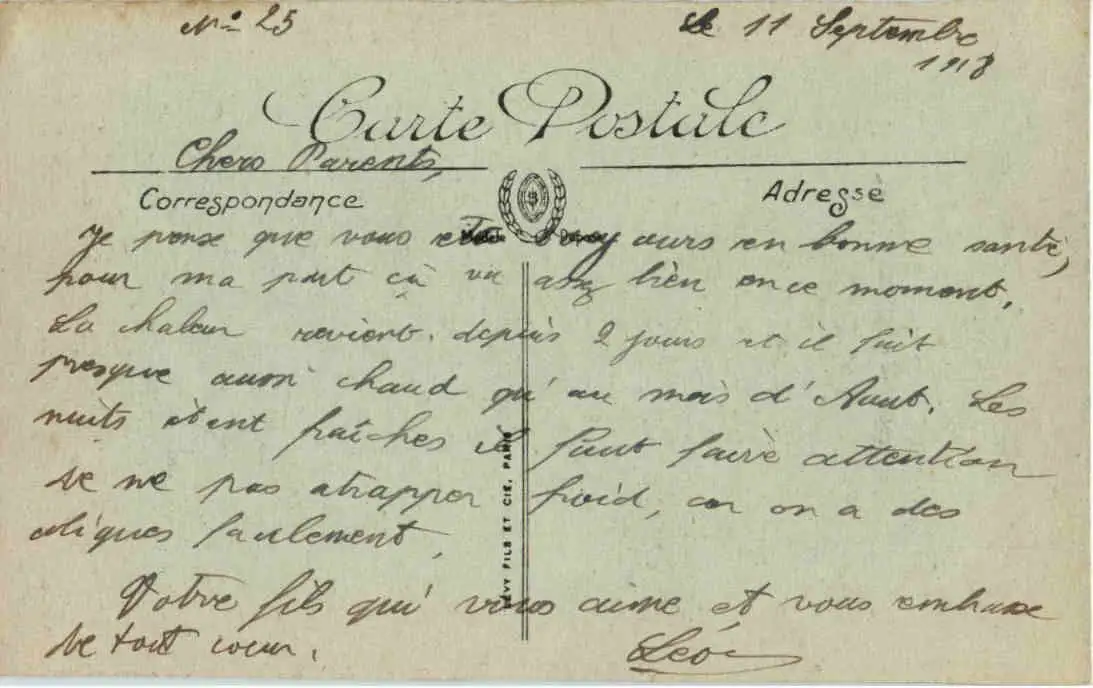 N° 25
Le 11 Septembre
1918
Carte Postale
Chers Parents,
Correspondance
Adresse
Je pense que vous ete toujours en bonne santé,
pour ma part ça va assez bien en ce moment.
La chaleur revient. depuis 2 jours et il fait
presque aussi chaud qu'au mois d'Aout. Les
nuits étant fraîches il faut faire attention
de ne pas atrapper froid, car on a des
coliques facilement.
Votre fils qui vous aime et vous embrasse
de tout coeur.
Léon
LÉVY FILS ET CIE, PARIS